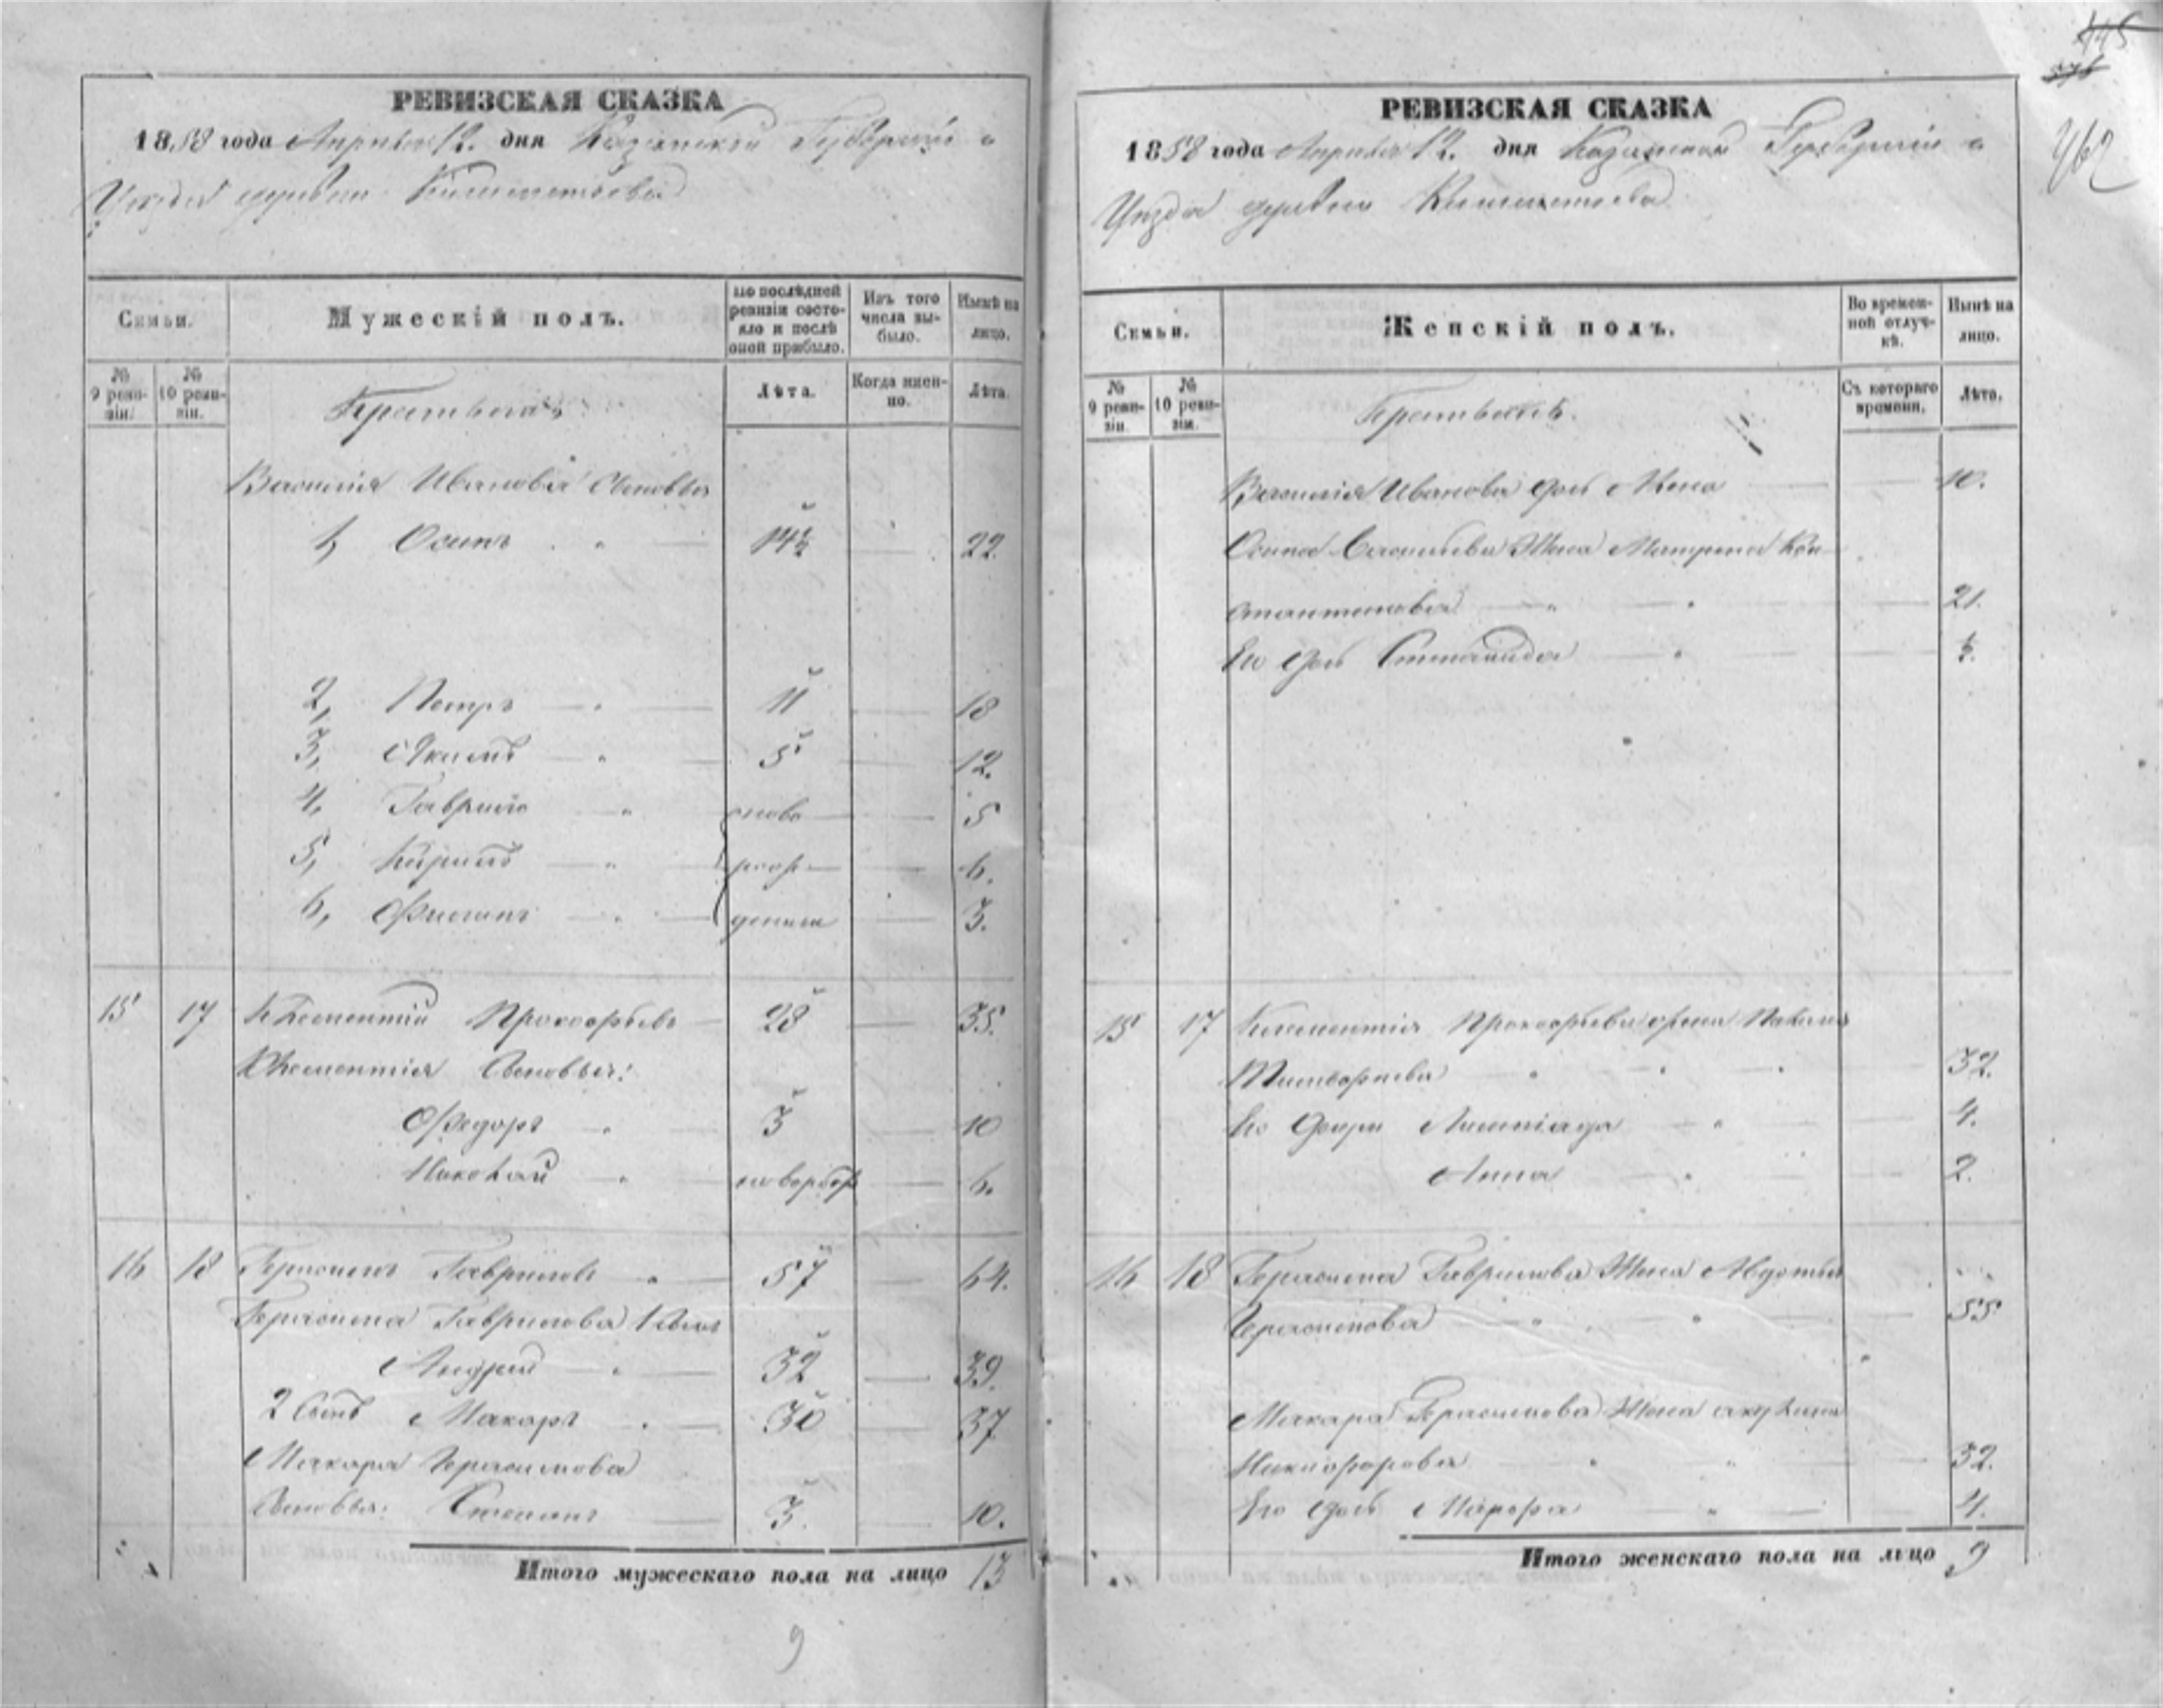 РЕВИЗСКАЯ СКАЗКА
1858 года Апреля 12. дня Казанской Губернiи и
Уезда деревни
Семьи.
Мужескiй полъ.
По послѣдней ревизiи состояло и послѣ оной прибыло.
Изъ того числа выбыло.
Нынѣ на лицо.
№ 9 ревизiи.
№ 10 ревизiи.
Лѣта.
Когда именно.
Лѣта.
Василiя Иванова Сыновья
1, Осипъ 14½ 22.
2, Петръ 11 18
3, Якимъ 5 12.
4, Гаврило ново 5
5, Кирилъ рож 6.
6, Филипъ дены 3.
15 17 Клементiй Прокофьевъ 28 35.
Клементiя Сыновья:
Федоръ 3 10
Николай новорож 6.
16 18 Герасимъ Гавриловъ 57 64.
Герасима Гаврилова 1 Сынъ
Андрей 32 39.
2 Сынъ Макаръ 30 37
Макара Герасимова
Сыновья: Степанъ 3. 10.
Итого мужескаго пола на лицо 13
9
445
462
РЕВИЗСКАЯ СКАЗКА
1858 года Апреля 12. дня Казанской Губернiи и
Уезда деревни
Семьи.
Женскiй полъ.
Во временной отлучкѣ.
Нынѣ на лицо.
№ 9 ревизiи.
№ 10 ревизiи.
Съ котораго времени.
Лѣта.
Василiя Иванова дочь 10.
Осипа Васильева Жена Матрена Кон
стантинова 21.
Его дочь Степанида ½.
15 17 Клементiя Прокофьева жена
Тимофеева 32.
Его дочери Алимпiада 4.
Анна 2.
16 18 Герасима Гаврилова Жена Авдотья
Герасимова 55
Макара Герасимова Жена акулина
Никифорова 32.
Его дочь Марфа 4.
Итого женскаго пола на лицо 9